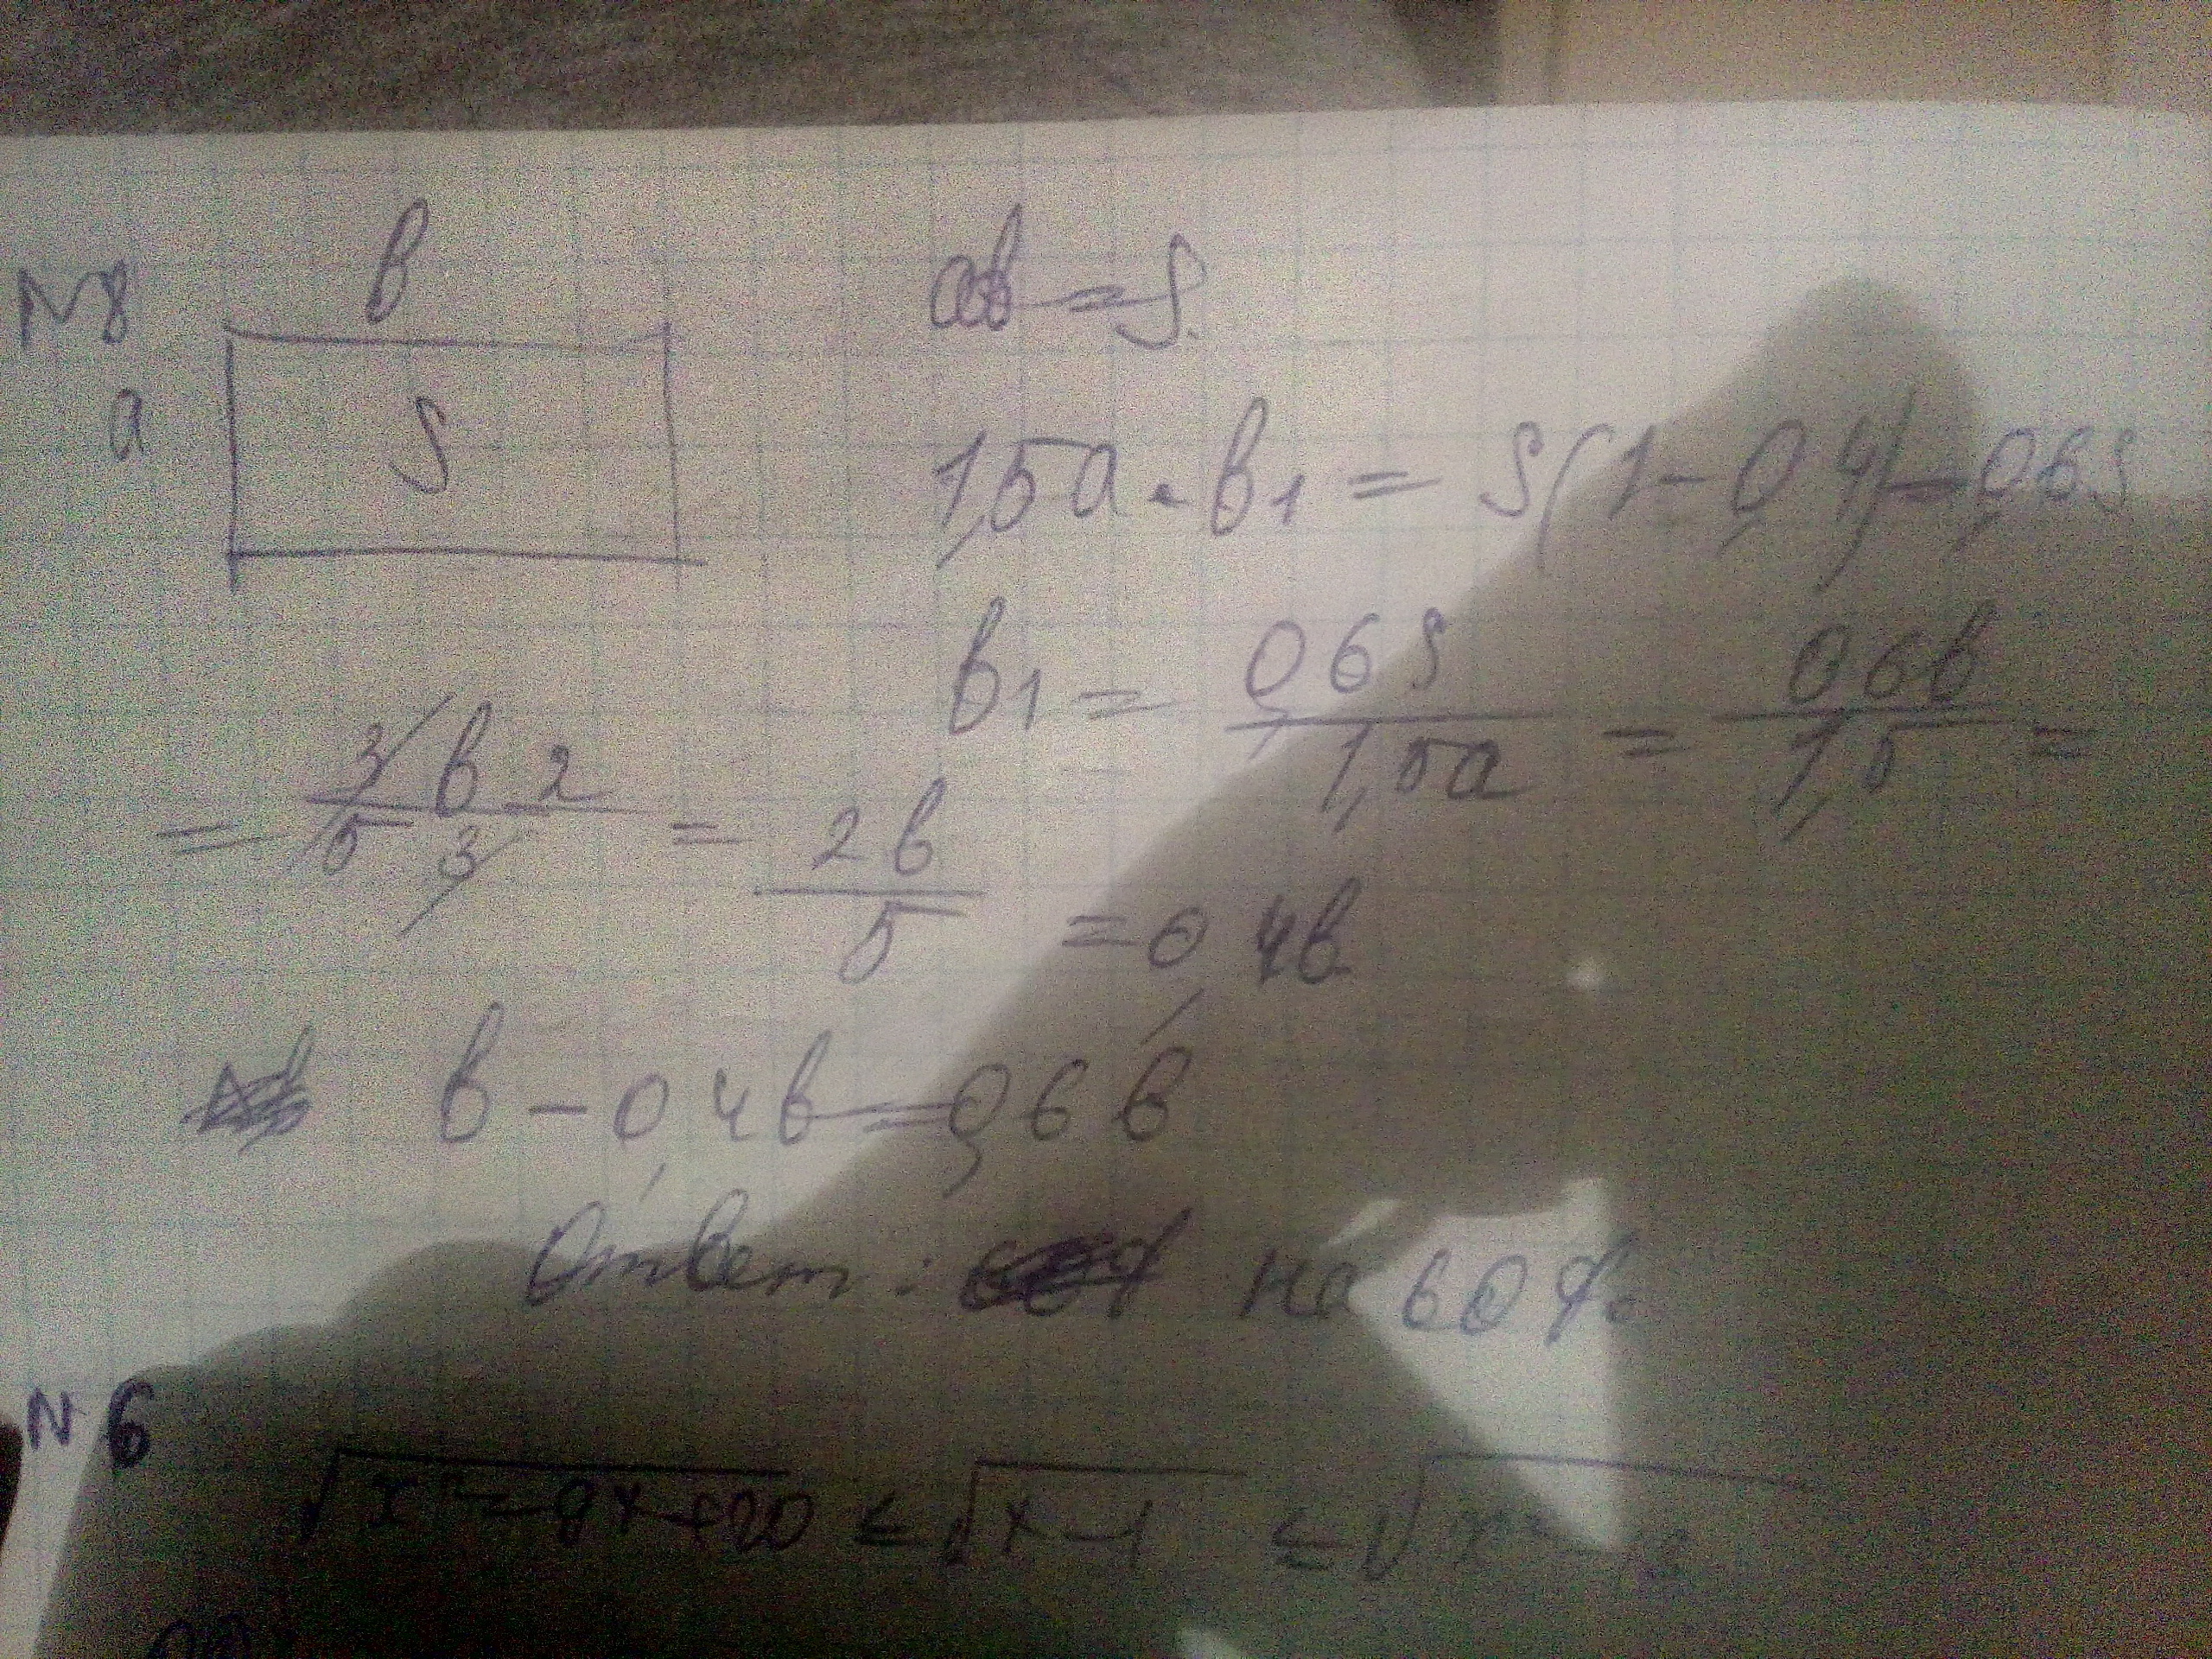 N8 в ав = S.
а S 1,5а · в1 = S(1 - 0,4) = 0,6S
в1 = 0,6S / 1,5а = 0,6в / 1,5 =
= 3 в 2 / 5 3 = 2в / 5 = 0,4в
в - 0,4в = 0,6в
Ответ: на 60%
N 6
√x² - 9x + 20 ≤ √x - 1 ≤ √